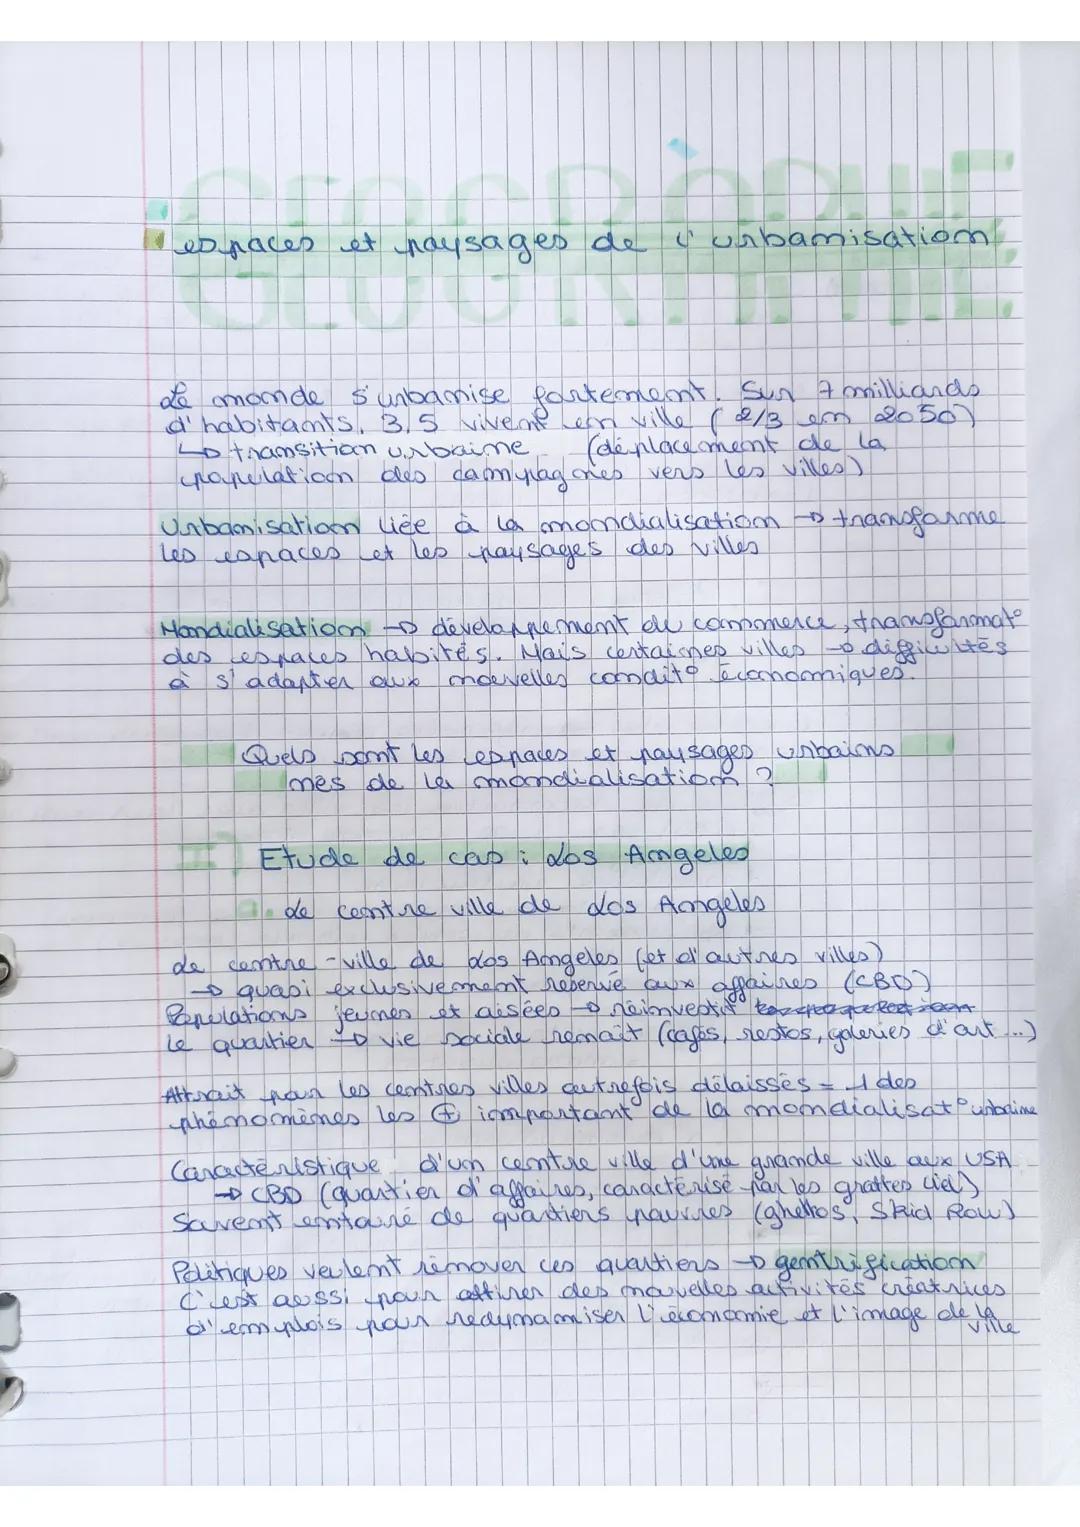 GEOGRAPHIE
espaces et paysages de l'urbanisation
GEOGRAPHIE
Le monde s'urbanise fortement. Sur 7 milliards
d'habitants, 3,5 vivent en ville (2/3 en 2050)
↳ transition urbaine (déplacement de la
population des campagnes vers les villes)
Urbanisation liée à la mondialisation → transforme
les espaces et les paysages des villes
Mondialisation → développement du commerce, transformat°
des espaces habités. Mais certaines villes → difficultés
à s'adapter aux nouvelles condit° économiques.
Quels sont les espaces et paysages urbains
nés de la mondialisation ?
I Etude de cas : Los Angeles
a. Le centre ville de Los Angeles
Le centre-ville de Los Angeles (et d'autres villes)
→ quasi exclusivement reservé aux affaires (CBD)
Populations jeunes et aisées → réinvestit
le quartier → vie sociale renait (cafés, restos, galeries d'art ...)
Attrait pour les centres villes autrefois délaissés = 1 des
phénomènes les + important de la mondialisat° urbaine
Caractéristique d'un centre ville d'une grande ville aux USA
→ CBD (quartier d'affaires, caractérisé par les grattes ciel)
Souvent entouré de quartiers pauvres (ghettos, Skid Row)
Politiques veulent rénover ces quartiers → gentrification
C'est aussi pour attirer des nouvelles activités créatrices
d'emplois pour redynamiser l'économie et l'image de la
ville